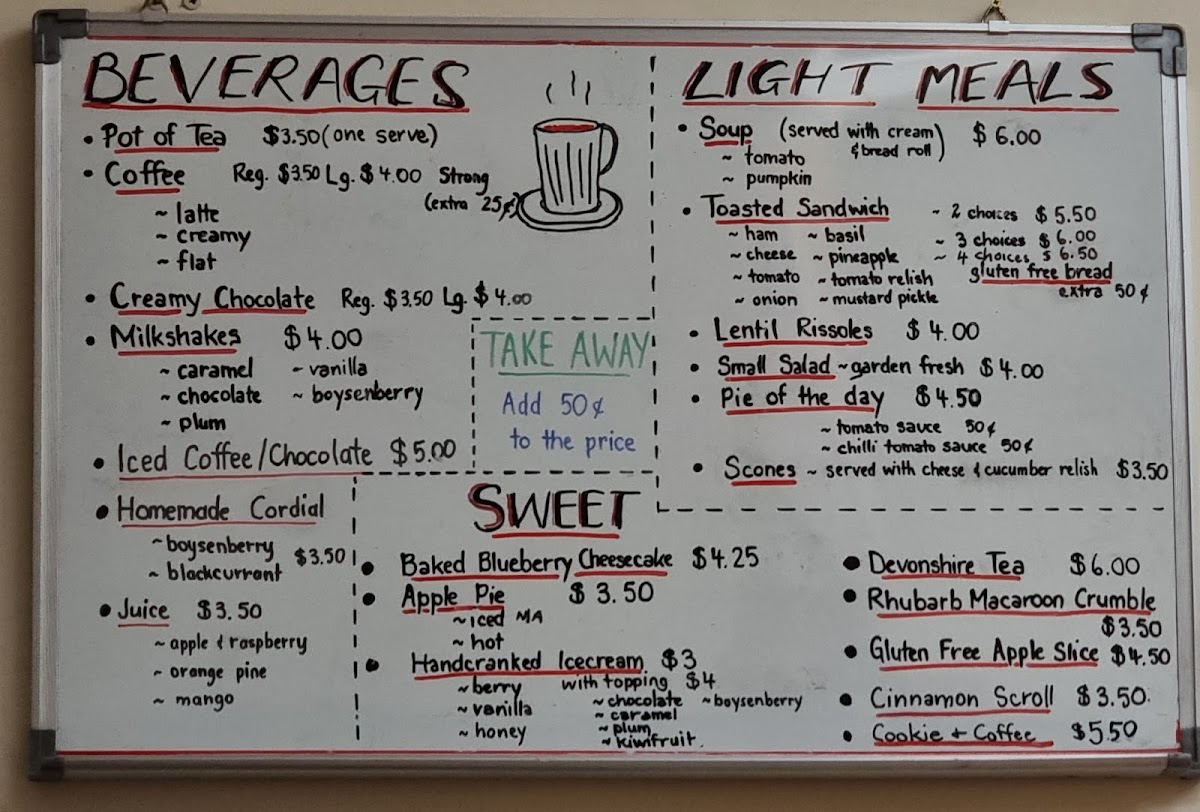 BEVERAGES
• Pot of Tea $3.50 (one serve)
• Coffee Reg. $3.50 Lg. $4.00 Strong
(extra 25¢)
~ latte
~ creamy
~ flat
• Creamy Chocolate Reg. $3.50 Lg. $4.00
• Milkshakes $4.00
~ caramel ~ vanilla
~ chocolate ~ boysenberry
~ plum
• Iced Coffee/Chocolate $5.00
• Homemade Cordial
~ boysenberry $3.50
~ blackcurrant
• Juice $3.50
~ apple & raspberry
~ orange pine
~ mango
TAKE AWAY
Add 50¢
to the price
LIGHT MEALS
• Soup (served with cream $6.00
& bread roll)
~ tomato
~ pumpkin
• Toasted Sandwich ~ 2 choices $5.50
~ ham ~ basil ~ 3 choices $6.00
~ cheese ~ pineapple ~ 4 choices $6.50
~ tomato ~ tomato relish gluten free bread
~ onion ~ mustard pickle extra 50¢
• Lentil Rissoles $4.00
• Small Salad ~ garden fresh $4.00
• Pie of the day $4.50
~ tomato sauce 50¢
~ chilli tomato sauce 50¢
• Scones ~ served with cheese & cucumber relish $3.50
SWEET
• Baked Blueberry Cheesecake $4.25
• Apple Pie $3.50
~ iced MA
~ hot
• Handcranked Icecream $3
~ berry with topping $4
~ vanilla ~ chocolate ~ boysenberry
~ caramel
~ honey ~ plum
~ kiwifruit.
• Devonshire Tea $6.00
• Rhubarb Macaroon Crumble
$3.50
• Gluten Free Apple Slice $4.50
• Cinnamon Scroll $3.50.
• Cookie + Coffee $5.50